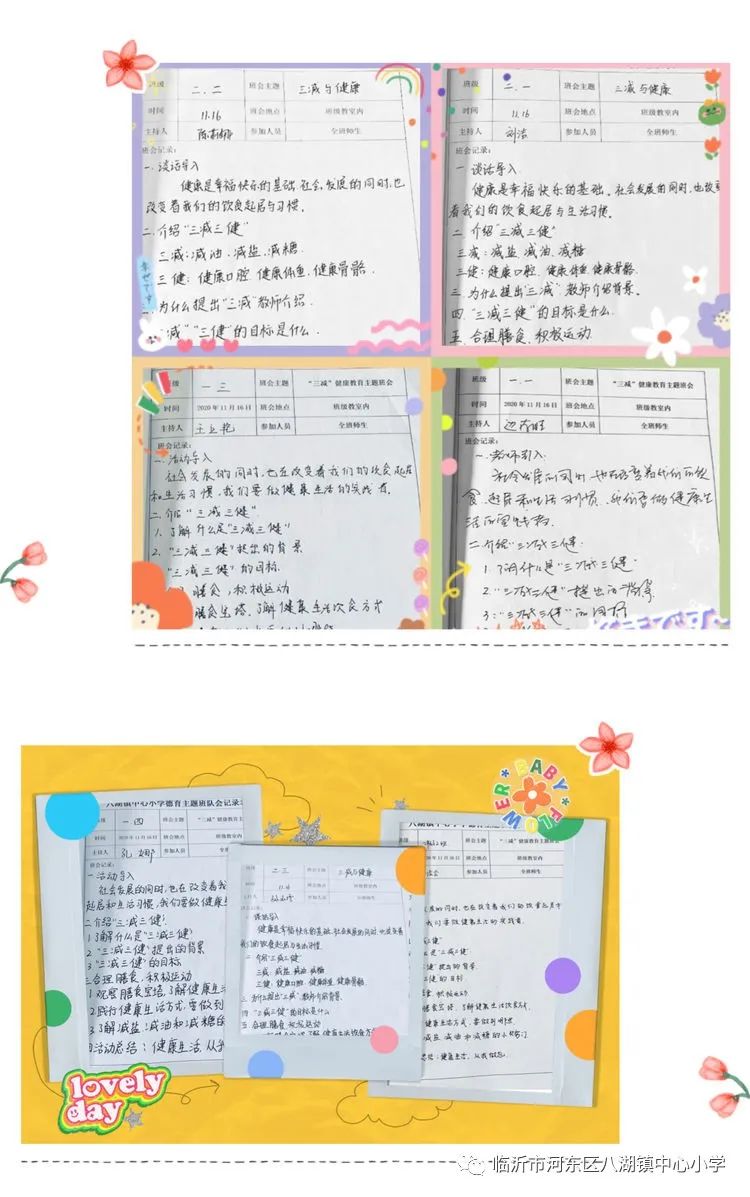 班级 二.二 班会主题 三减与健康
时间 11.16 班会地点 班级教室内
主持人 参加人员 全班师生
班会记录:
一.谈话导入
健康是幸福快乐的基础.社会发展的同时,也
改变着我们的饮食起居与习惯.
二.介绍"三减三健"
三减:减油.减盐.减糖.
三健:健康口腔.健康体重.健康骨骼.
三.为什么提出"三减"教师介绍.
减""三健"的目标是什么.
班级 二.一 班会主题 三减与健康
时间 11.16 班会地点 班级教室内
主持人 刘洁 参加人员 全班师生
班会记录:
一.谈话导入.
健康是幸福快乐的基础.社会发展的同时,也改变
着我们的饮食起居与生活习惯.
二.介绍"三减三健"
三减:减盐.减油.减糖
三健:健康口腔.健康体重.健康骨骼.
三.为什么提出"三减"教师介绍背景.
四."三减三健"的目标是什么.
五.合理膳食.积极运动.
班级 一.三 班会主题 "三减"健康教育主题班会
时间 2020年11月16日 班会地点 班级教室内
主持人 参加人员 全班师生
班会记录:
一.活动导入
社会发展的同时,也在改变着我们的饮食起居
和生活习惯,我们要做健康生活的实践者.
二.介绍"三减三健"
1.了解什么是"三减三健"
2."三减三健"提出的背景
"三减三健"的目标.
膳食,积极运动
膳食宝塔.了解健康生活饮食方式
班级 一.一 班会主题 "三减"健康教育主题班会
时间 2020年11月16日 班会地点 班级教室内
主持人 参加人员 全班师生
班会记录:
一.教师引入.
社会发展的同时,也在改变着我们的饮
食、起居和生活习惯.我们要做健康生
活的实践者.
二.介绍"三减三健.
1.了解什么是"三减三健"
2."三减三健"提出的背景
3."三减三健"的目标
八湖镇中心小学德育主题班队会记录
班级 一.四 班会主题 "三减"健康教育主
时间 2020年11月16日 班会地点 班级教室内
主持人 孔娜 参加人员 全班师
班会记录:
一.活动导入
社会发展的同时,也在改变着我
起居和生活习惯,我们要做健康生
二.介绍"三减三健"
1.了解什么是"三减三健"
2."三减三健"提出的背景
3."三减三健"的目标
三.合理膳食,积极运动
1.观察膳食宝塔,了解健康生
2.践行健康生活方式,要做到
3.了解减盐.减油和减糖的
四.活动总结:健康生活,从我
班级 二.三 班会主题 三减与健康
时间 11.16 班会地点 班级教室内
参加人员 全班师生
一.谈话导入
健康是幸福快乐的基础.社会发展的同时,也改变着
我们的饮食起居与生活习惯
二.介绍"三减三健"
三减:减盐.减油.减糖
三健:健康口腔.健康体重.健康骨骼.
三.为什么提出"三减"教师介绍背景.
四."三减三健"的目标是什么
五.合理膳食.积极运动
班会主题 "三减"健康教育主题班会
班会地点 班级教室内
参加人员 全班师生
BABY FLOWER
lovely
day
临沂市河东区八湖镇中心小学